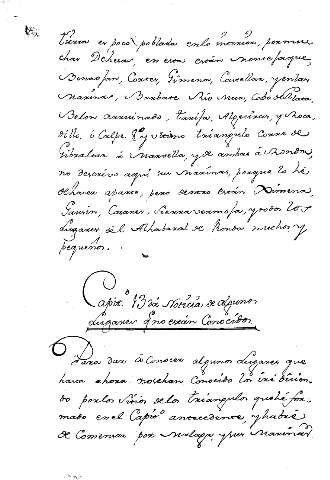 tierra es poco poblada en lo interior, por mu
chas Dehesas, en esta están Montesaque,
Benaojan, Cortes, Ximena, Castellar, y en las
Marinas, Barbate Rio
Belon arruinado, Tarifa, Algeciras, y Roca
y ultimo triangulo corre de
Gibraltar á Marvella, y de ambas á Ronda,
no descrivo aqui sus Marinas, porque lo hé
de hacer aparte, pero dentro están Ximena,
Gausin, Casares, Sierra vermeja, y todos los
Lugares del Alhabaral de Ronda muchos y
pequeños.
Capit.º 13 dá Noticia de algunos
Lugares q.e no están Conocidos
Para dar á Conocer algunos Lugares que
hasta ahora no se han Conocido los iré
do por los Sitios de los triangulos que hé for
mado en el Capit.º antecedente, y habré
de Comenzar por Malaga, y sus Marinas